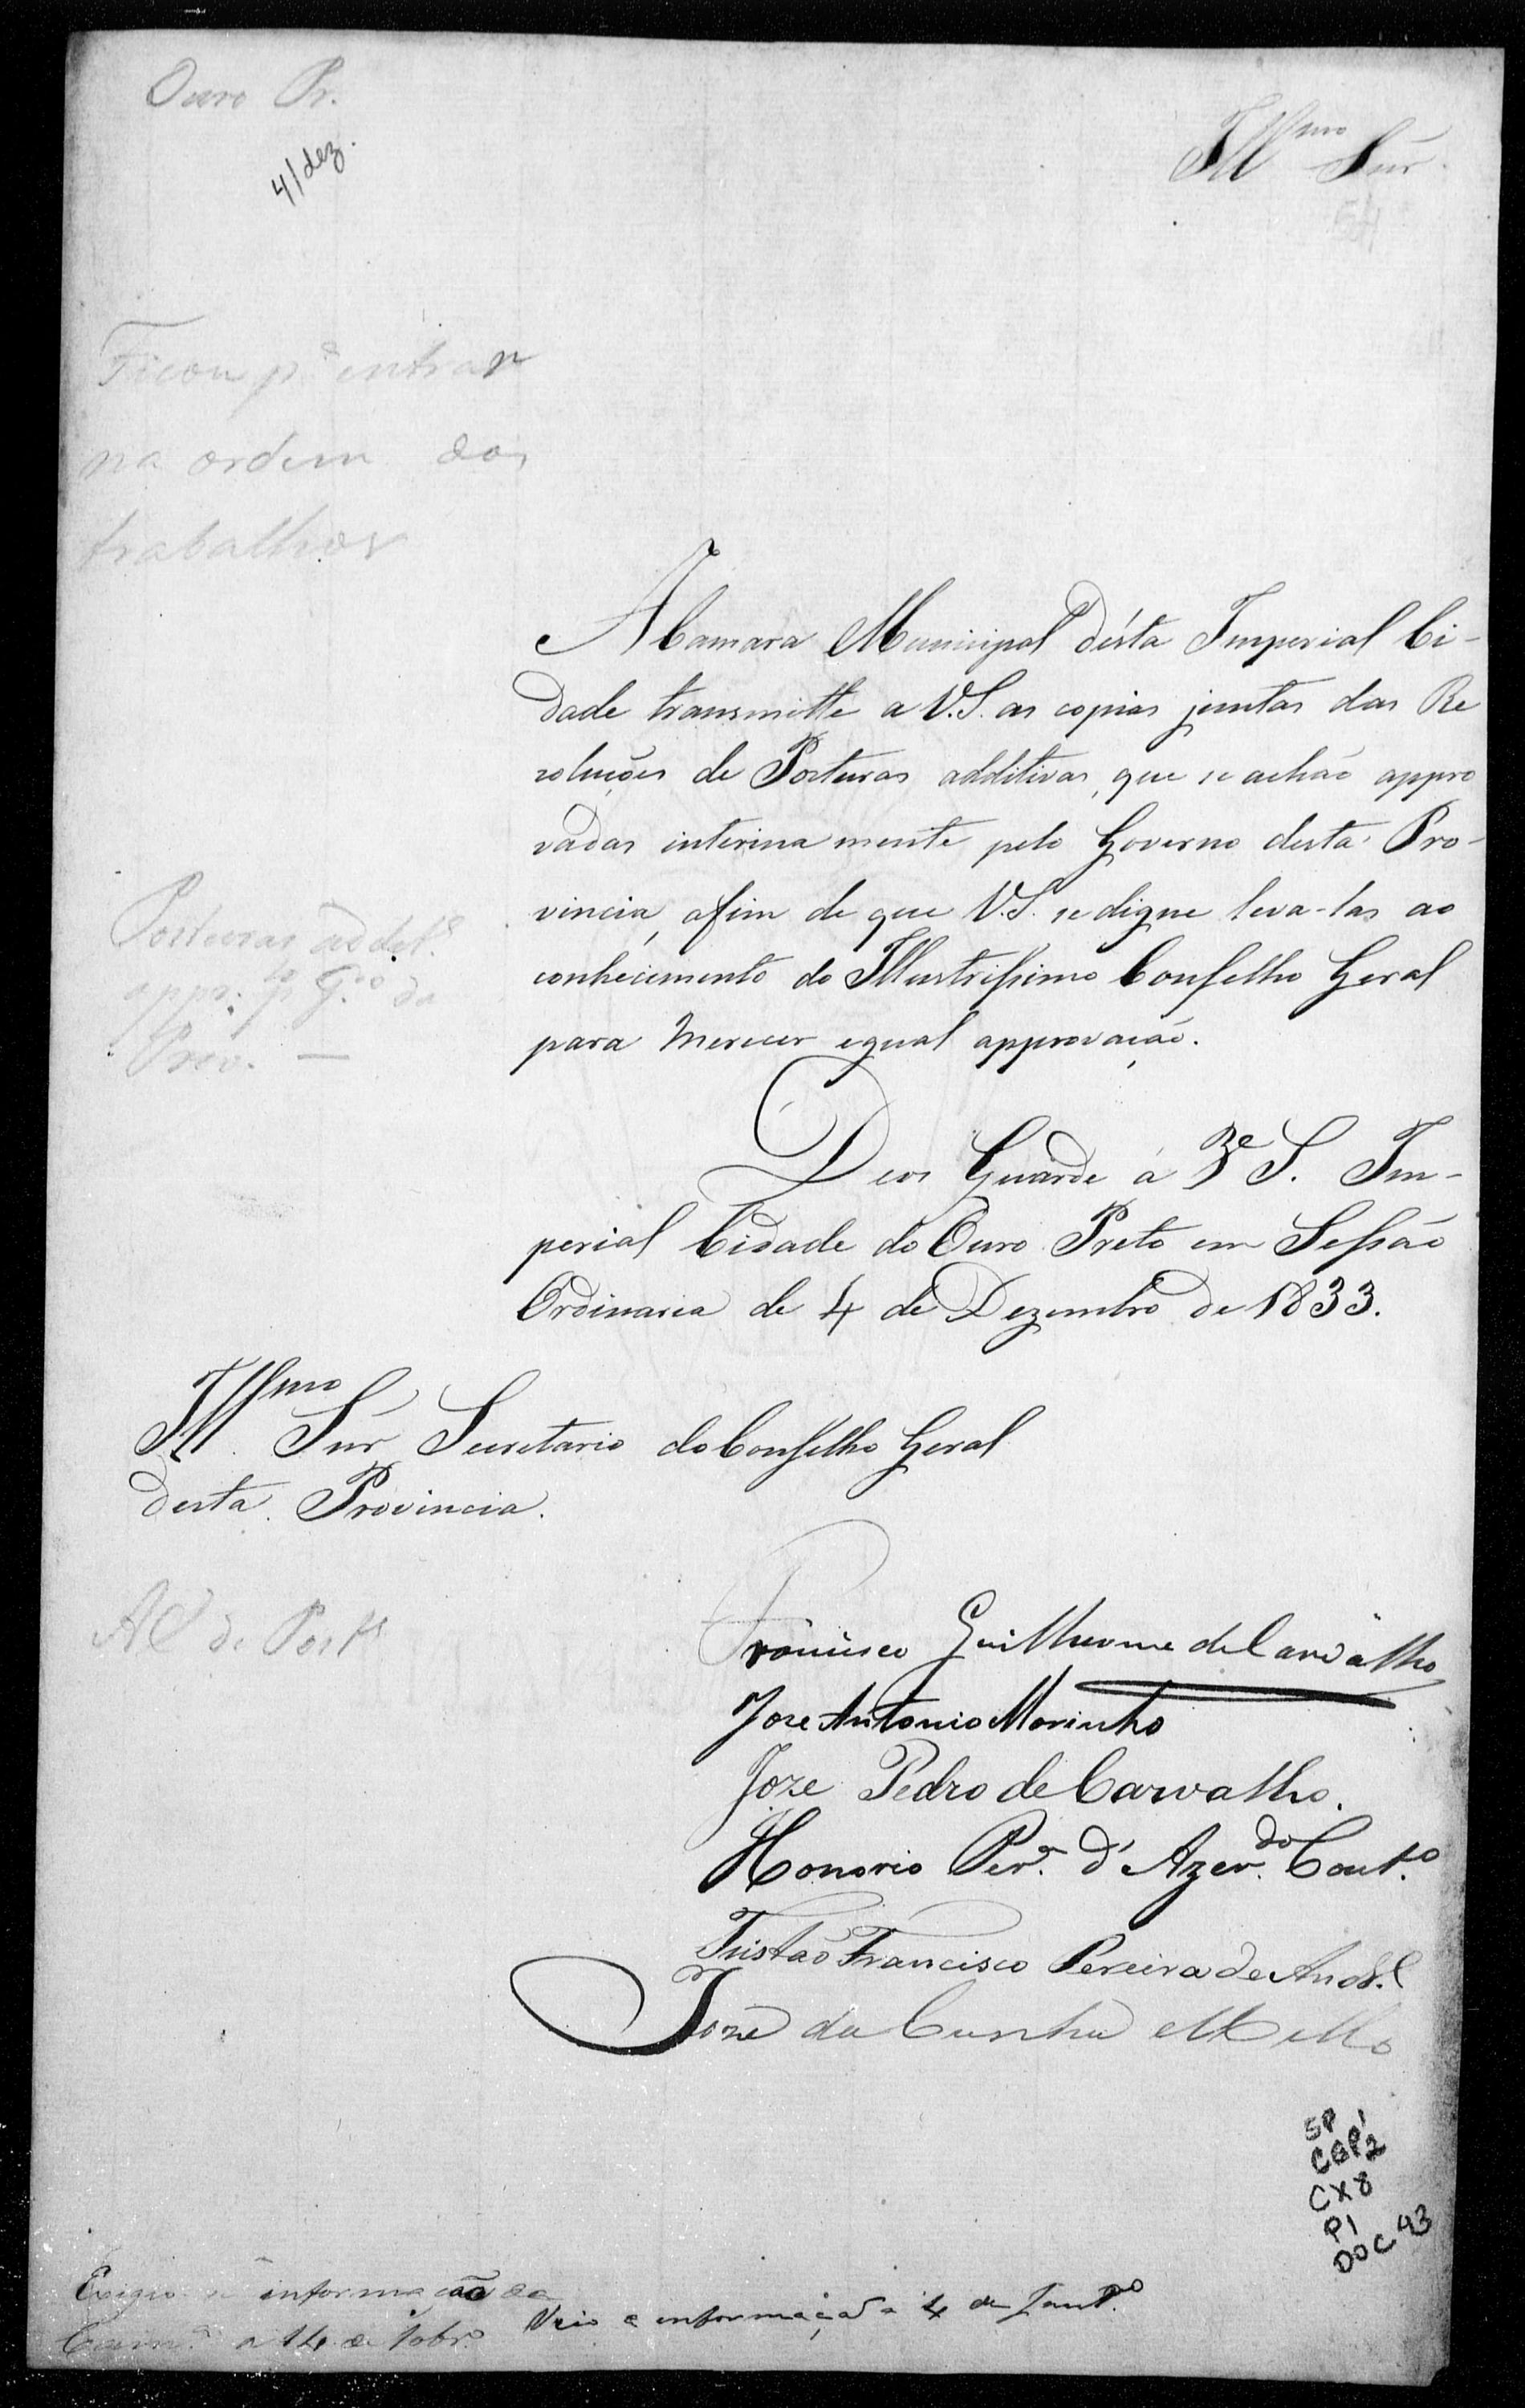 Ouro Pr.
4/dez.
Ill.mo Snr.
54
Ficou p.a entrar
na ordem dos
trabalhos
A Camara Municipal désta Imperial Ci-
dade transmitte a V.S. as copias juntas das Re
soluções de Posturas additivas, que se achão appro
vadas interinamente pelo Governo desta Pro-
vincia, afim de que V.S. se digne leva-las ao
conhecimento do Illustrissimo Conselho Geral
para merecer egual approvação.
Posturas addit.s
appr. p.lo G.no da
Prov. —
Deos Guarde á V.S. Im-
perial Cidade do Ouro Preto em Sessão
Ordinaria de 4 de Dezembro de 1833.
Ill.mo Snr Secretario do Conselho Geral
desta Provincia.
Á C de Post.s
Francisco Guilherme de Carvalho
Joze Antonio Marinho
Joze Pedro de Carvalho.
Honorio Per.a d'Azev.do Cout.o
Tristão Francisco Pereira de Andr.e
Joze da Cunha Mello
SP
CGP1 2
CX 8
P1
DOC 43
Exigio-se informação da
Cam.a a 14 de 10br.o
Veio a informação a 4 de Janr.o